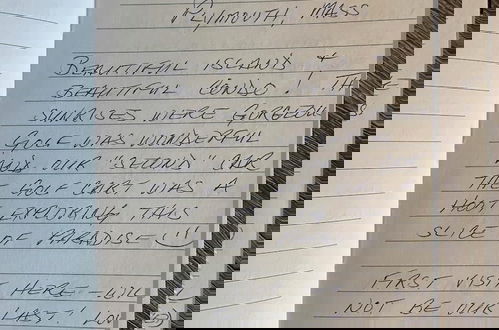 PLYMOUTH, MASS
BEAUTIFUL ISLAND &
BEAUTIFUL CONDO! THE
SUNRISES WERE GORGEOUS
GOLF WAS WONDERFUL
AND OUR "SECOND"
THE GOLF CART WAS A
HOOT
SLICE OF PARADISE
FIRST VISIT
HERE - WILL
NOT BE OUR
LAST!